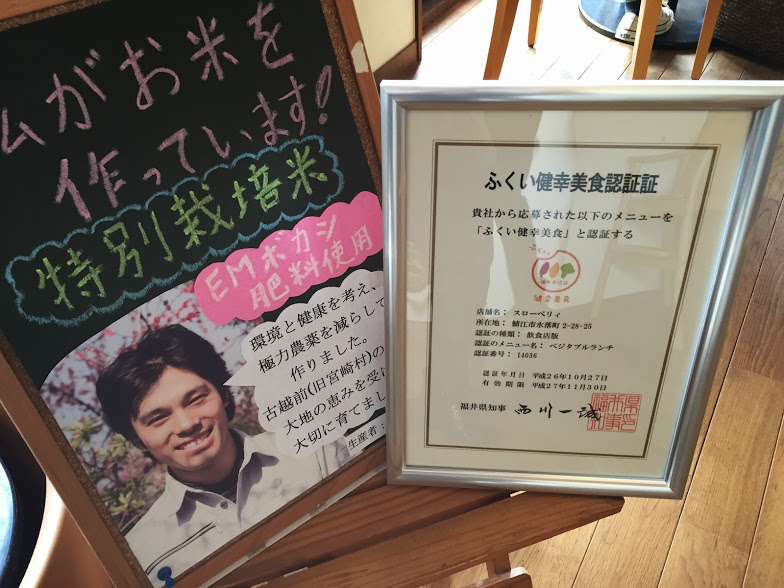 ムがお米を
作っています!
特別栽培米
EMボカシ
肥料使用
環境と健康を考え、
極力農薬を減らして
作りました。
古越前(旧宮崎村)の
大地の恵みを受け
大切に育てまし
生産者:
ふくい健幸美食認証証
貴社から応募された以下のメニューを
「ふくい健幸美食」と認証する
ふくい
健幸美食
店舗名: スローベリィ
所在地: 鯖江市水落町2-28-25
認証の種類: 飲食店版
認証のメニュー名: ベジタブルランチ
認証番号: 14036
認証年月日 平成26年10月27日
有効期限 平成27年11月30日
福井県知事 西川一誠